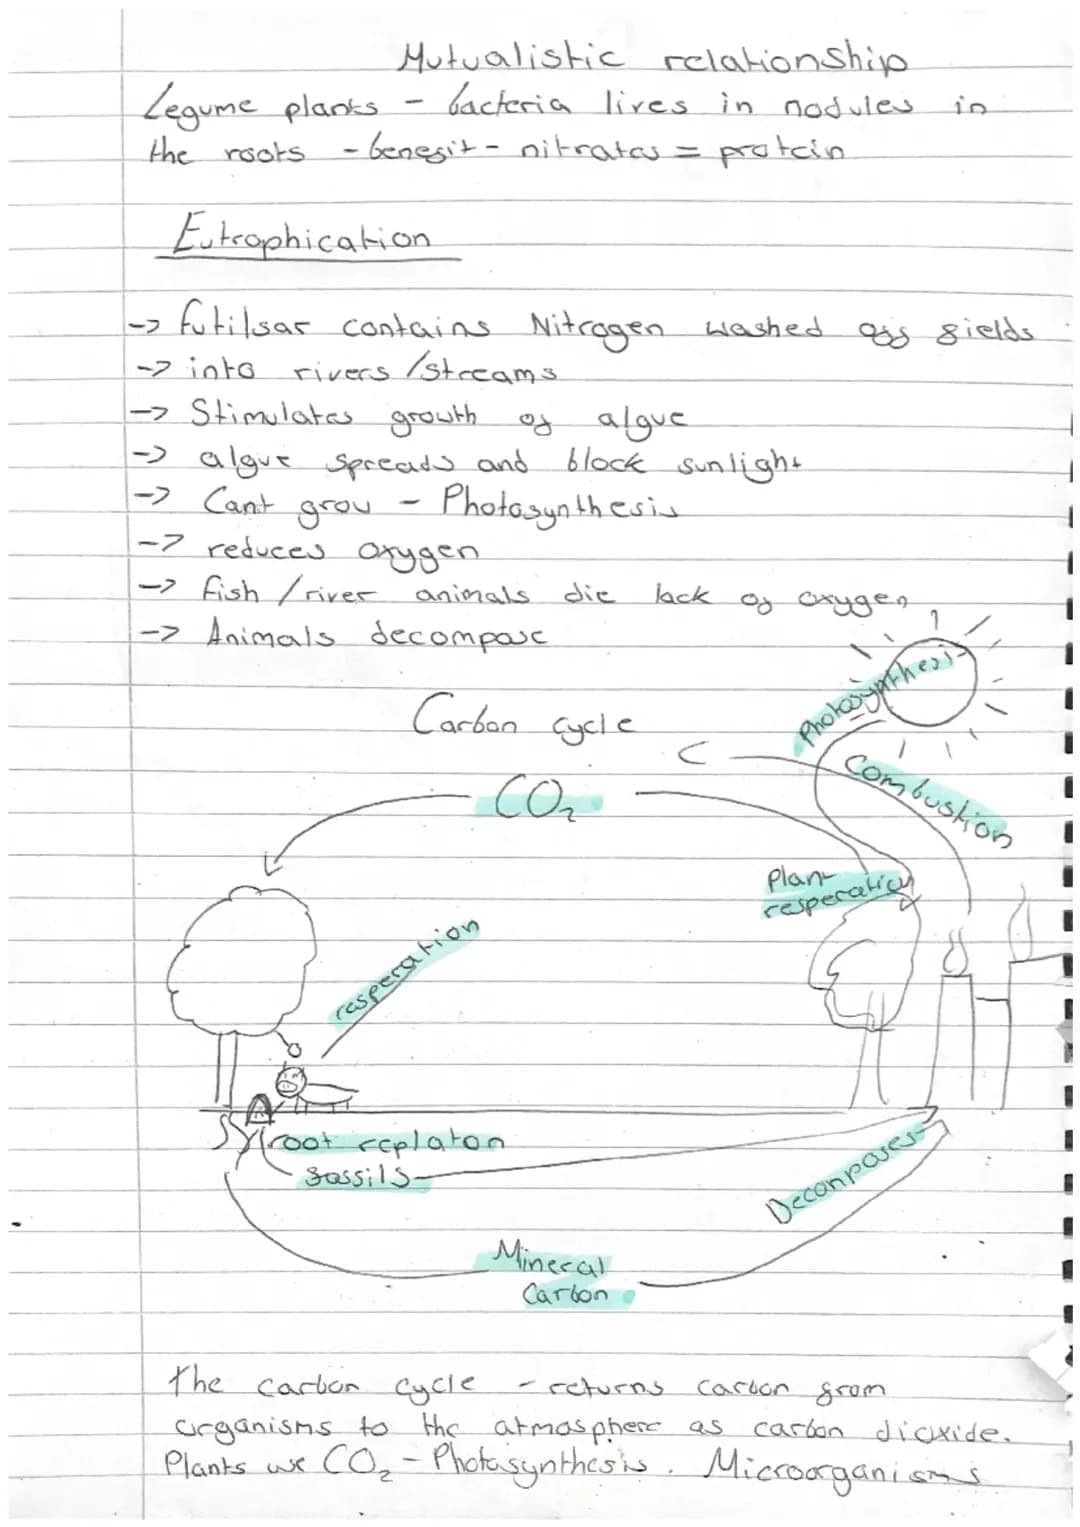 Mutualistic relationship
Legume plants - bacteria lives in nodules in
the roots - benefit - nitrates = protein
Eutrophication
-> futilsar contains Nitrogen washed off fields
-> into rivers / streams
-> Stimulates growth of algue
-> algue spreads and block sunlight
-> Cant grow - Photosynthesis
-> reduces oxygen
-> fish / river animals die lack of oxygen
-> Animals decompose
Photosynthesis
Carbon cycle
Combustion
CO₂
Plant
resperation
resperation
root replaton
fossils
Decomposes
Mineral
Carbon
the carbon cycle - returns carbon from
organisms to the atmosphere as carbon dioxide.
Plants use CO₂ - Photosynthesis. Microorganisms